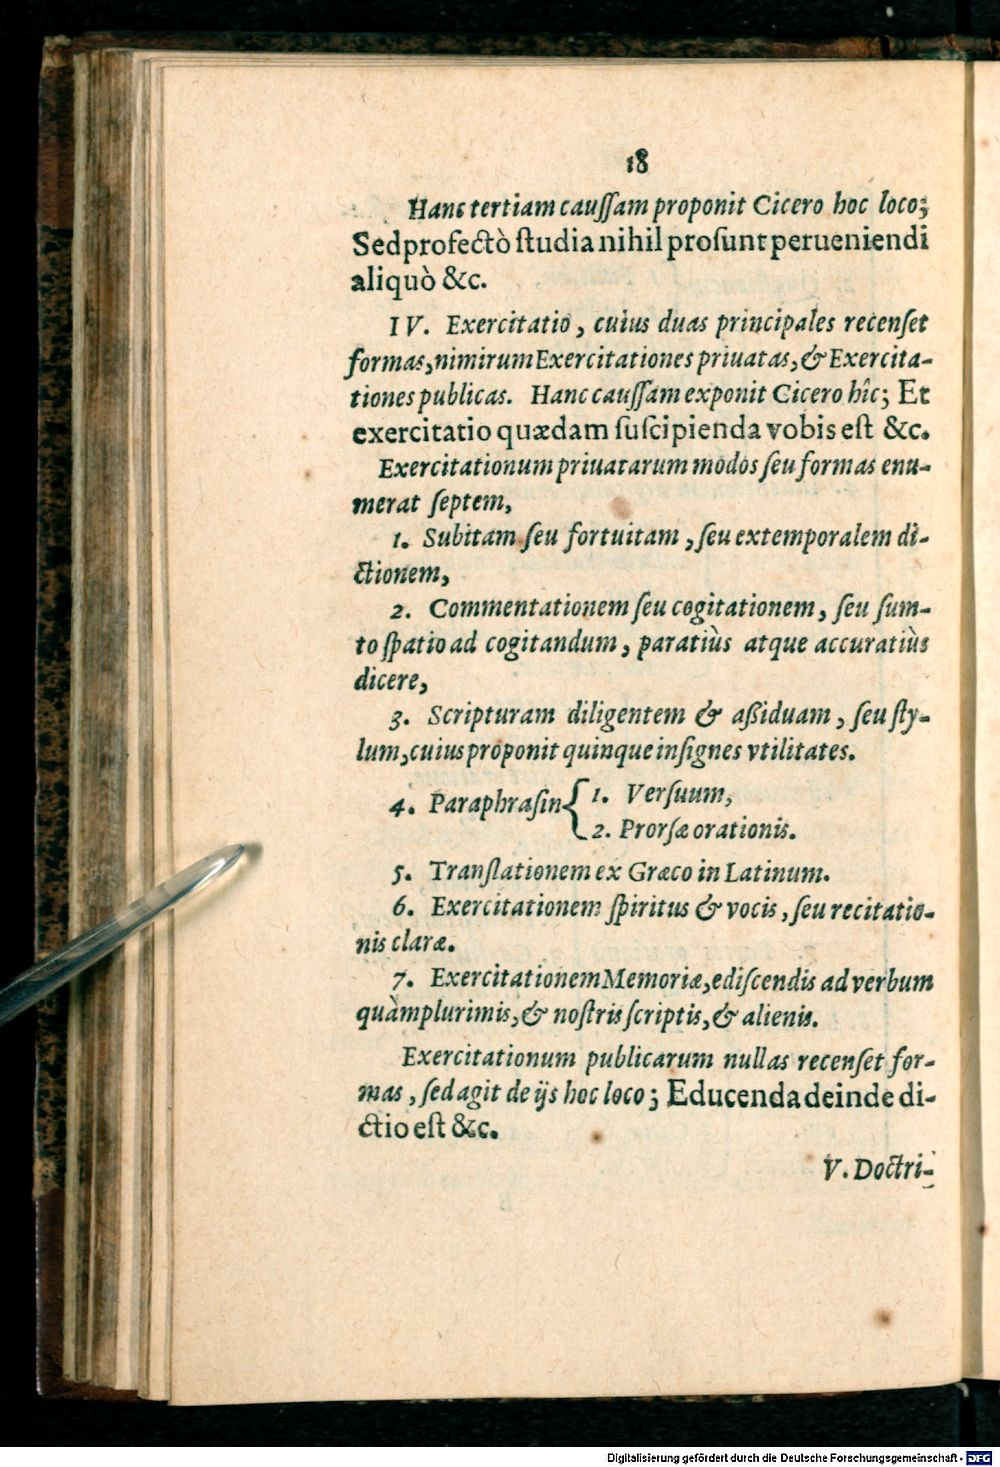 18
Hanc tertiam cauſſam proponit Cicero hoc loco;
Sed profectò ſtudia nihil proſunt perueniendi
aliquò &c.
IV. Exercitatio, cuius duas principales recenſet
formas, nimirum Exercitationes priuatas, & Exercita-
tiones publicas. Hanc cauſſam exponit Cicero hîc; Et
exercitatio quædam ſuſcipienda vobis eſt &c.
Exercitationum priuatarum modos ſeu formas enu-
merat ſeptem,
1. Subitam ſeu fortuitam, ſeu extemporalem di-
ctionem,
2. Commentationem ſeu cogitationem, ſeu ſum-
to ſpatio ad cogitandum, paratiùs atque accuratiùs
dicere,
3. Scripturam diligentem & aßiduam, ſeu ſty-
lum, cuius proponit quinque inſignes vtilitates.
4. Paraphraſin { 1. Verſuum,
2. Prorſæ orationis.
5. Tranſlationem ex Græco in Latinum.
6. Exercitationem ſpiritus & vocis, ſeu recitatio-
nis claræ.
7. Exercitationem Memoriæ, ediſcendis ad verbum
quàmplurimis, & noſtris ſcriptis, & alienis.
Exercitationum publicarum nullas recenſet for-
mas, ſed agit de ijs hoc loco; Educenda deinde di-
ctio eſt &c.
V. Doctri-
Digitalisierung gefördert durch die Deutsche Forschungsgemeinschaft - DFG